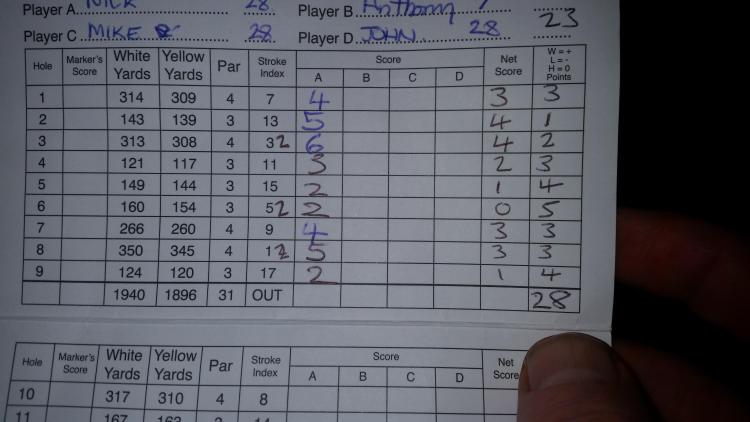 Player A NICK 28 Player B Anthony 23
Player C MIKE 28 Player D JOHN. 28
Hole Marker's Score White Yards Yellow Yards Par Stroke Index Score Net Score W = + L = - H = 0 Points
A B C D
1 314 309 4 7 4 3 3
2 143 139 3 13 5 4 1
3 313 308 4 3 2 6 4 2
4 121 117 3 11 3 2 3
5 149 144 3 15 2 1 4
6 160 154 3 5 2 2 0 5
7 266 260 4 9 4 3 3
8 350 345 4 1 2 5 3 3
9 124 120 3 17 2 1 4
1940 1896 31 OUT 28
Hole Marker's Score White Yards Yellow Yards Par Stroke Index Score Net Score
A B C D
10 317 310 4 8
11 167 162